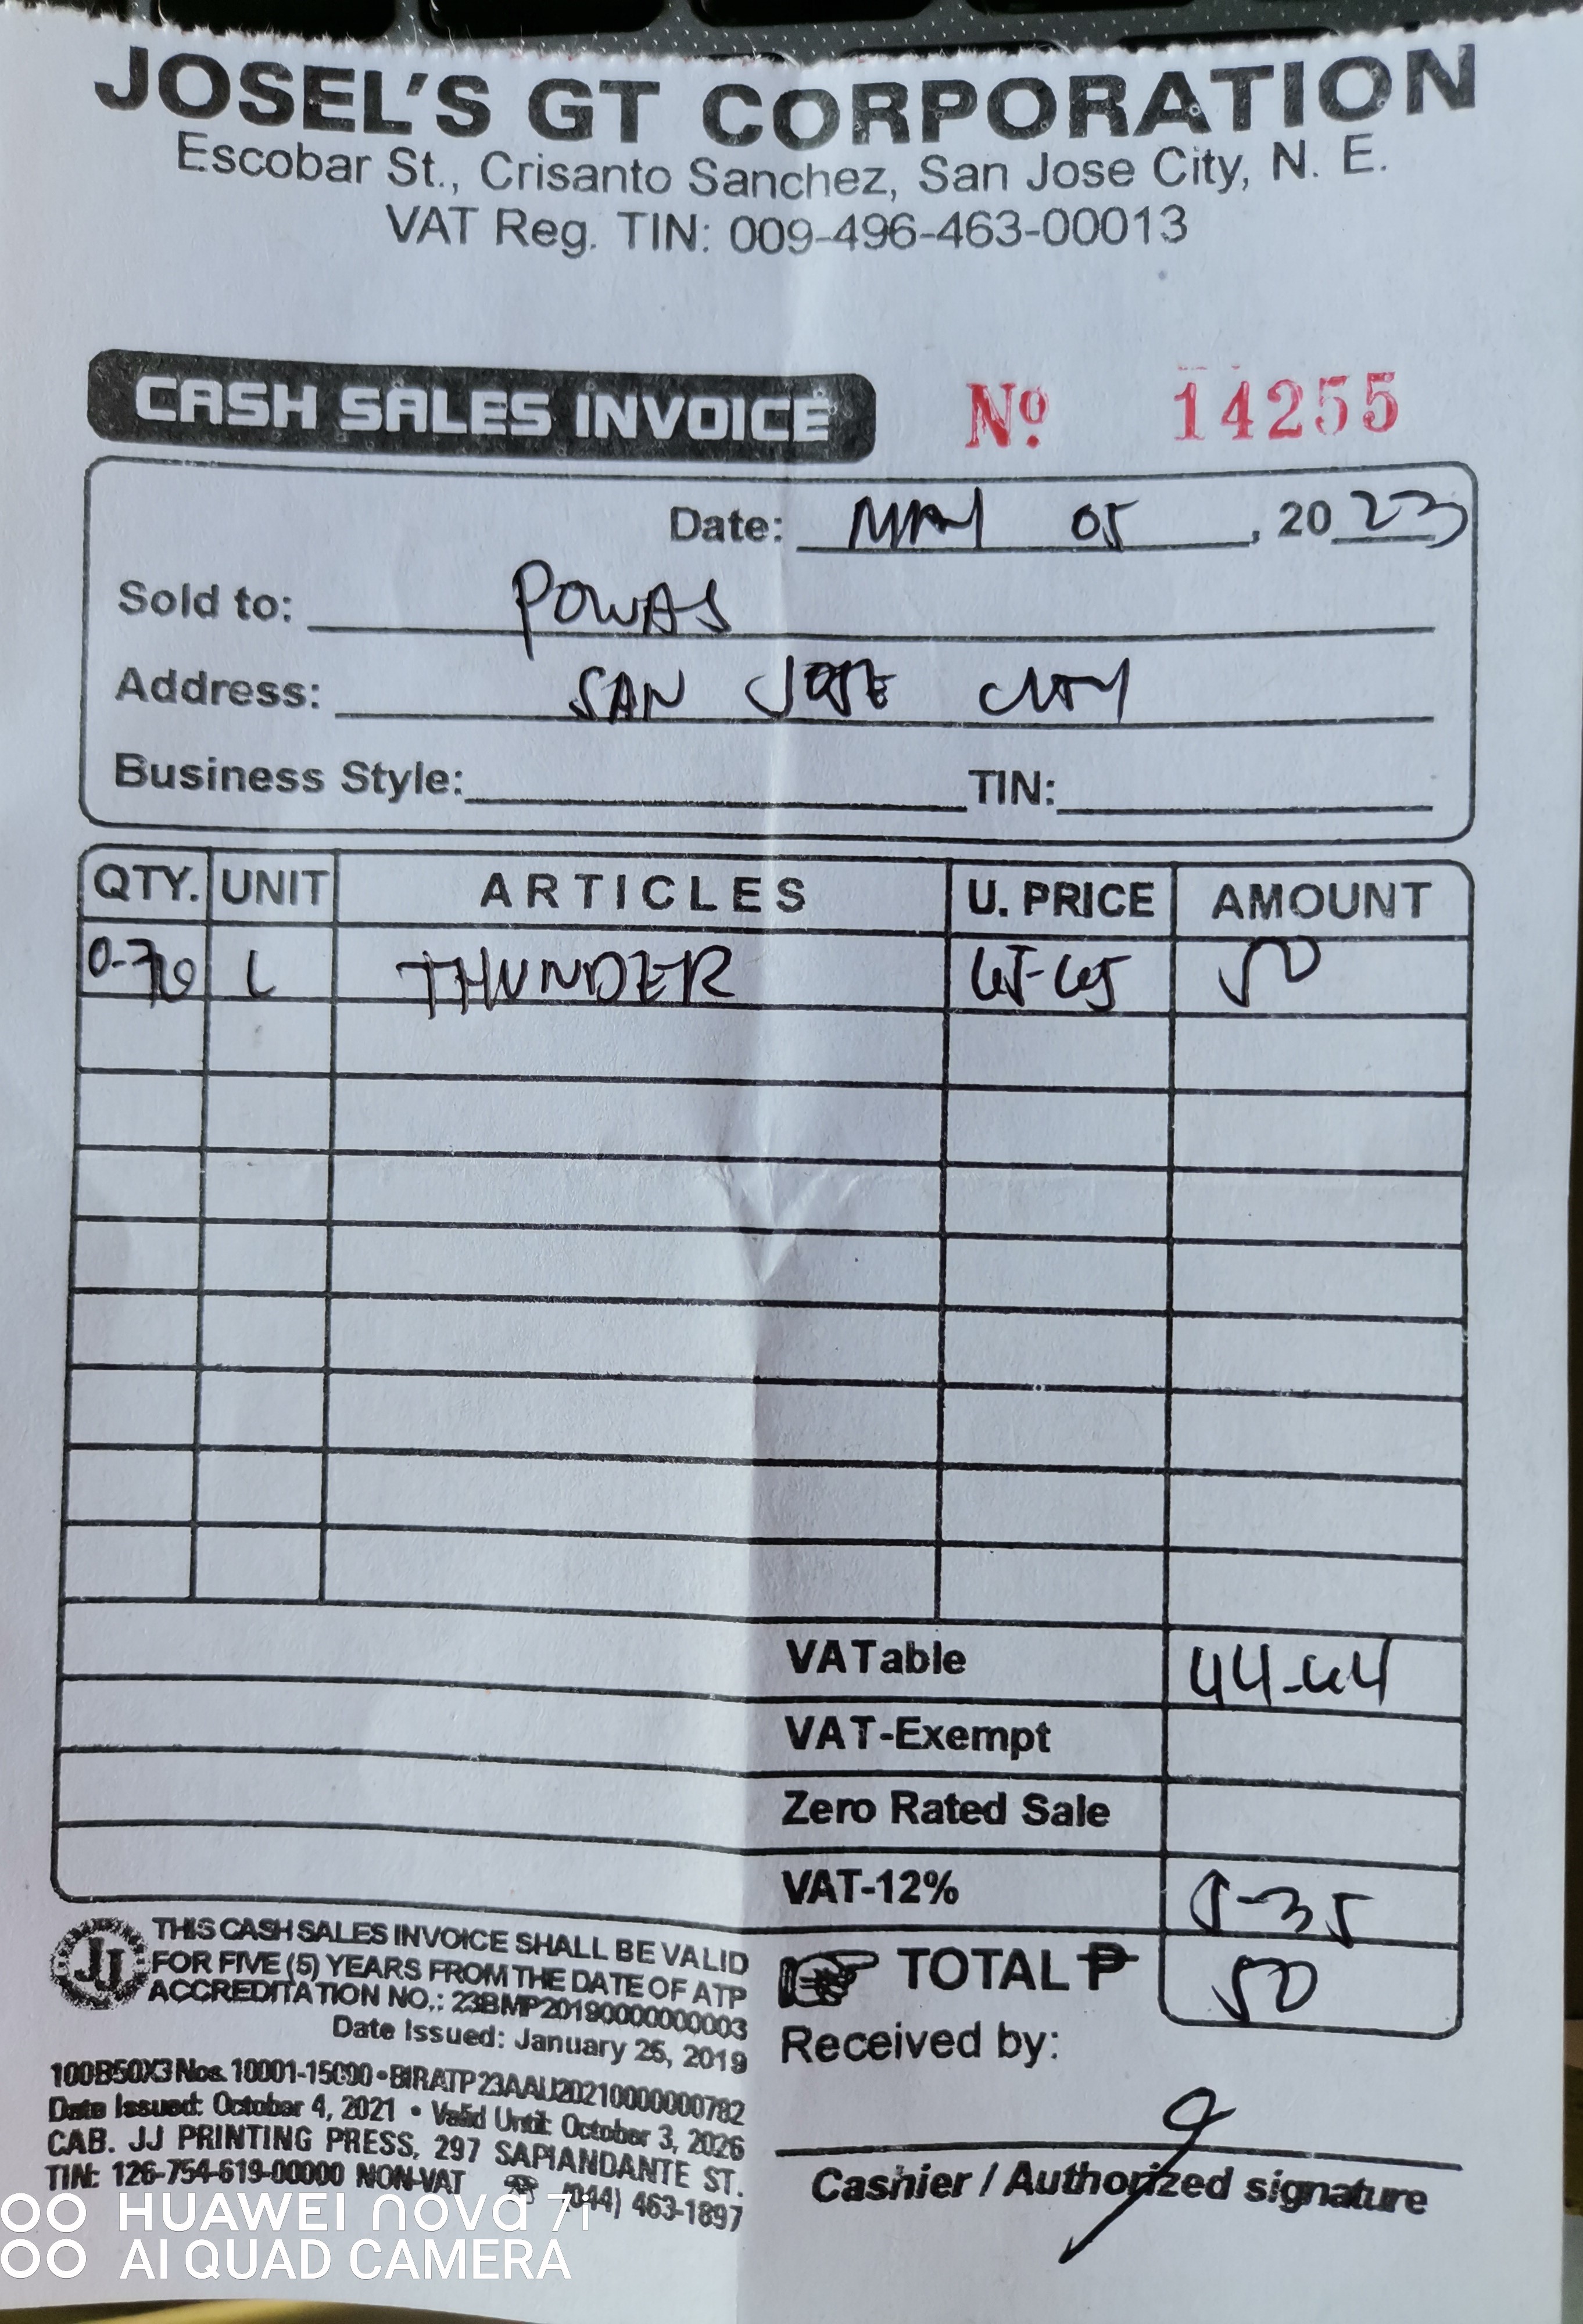 JOSEL'S GT CORPORATION
Escobar St., Crisanto Sanchez, San Jose City, N. E.
VAT Reg. TIN: 009-496-463-00013
CASH SALES INVOICE Nº 14255
Date: MAY 05, 2023
Sold to: POWAS
Address: SAN JOSE CITY
Business Style: TIN:
QTY. UNIT ARTICLES U. PRICE AMOUNT
L THUNDER 50
VATable 44-64
VAT-Exempt
Zero Rated Sale
VAT-12% 5-35
TOTAL ₱ 50
Received by:
Cashier / Authorized signature
JJ
THIS CASH SALES INVOICE SHALL BE VALID
FOR FIVE (5) YEARS FROM THE DATE OF ATP
ACCREDITATION NO.: 23BMP20190000000003
Date Issued: January 25, 2019
100B50X3 Nos. 10001-15000 • BIR ATP 23AAU20210000000782
Date Issued: October 4, 2021 • Valid Until: October 3, 2026
CAB. JJ PRINTING PRESS, 297 SAPIANDANTE ST.
TIN: 126-754-619-00000 NON-VAT ☎ (044) 463-1897
HUAWEI nova 7i
AI QUAD CAMERA